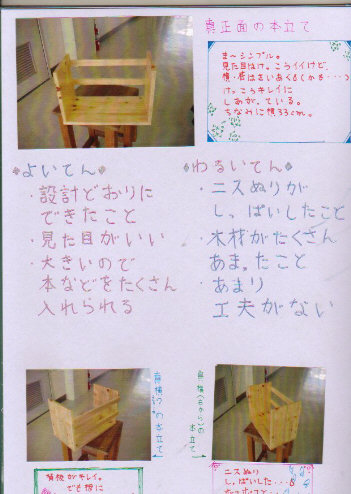 真正面の本立て
ま〜シンプル。
見た目はけっこうイイけど、
横・後はさいあくる(かも・・・)
けっこうキレイに
しあがっている。
ちなみに横33cm。
よいてん
・設計どおりに
できたこと
・見た目がいい
・大きいので
本などをたくさん
入れられる
わるいてん
・ニスぬりが
しっぱいしたこと
・木材がたくさん
あまったこと
・あまり
工夫がない
真横(右から)の
本立て
背後がキレイ。
でも横に
ニスぬり
しっぱいした・・・